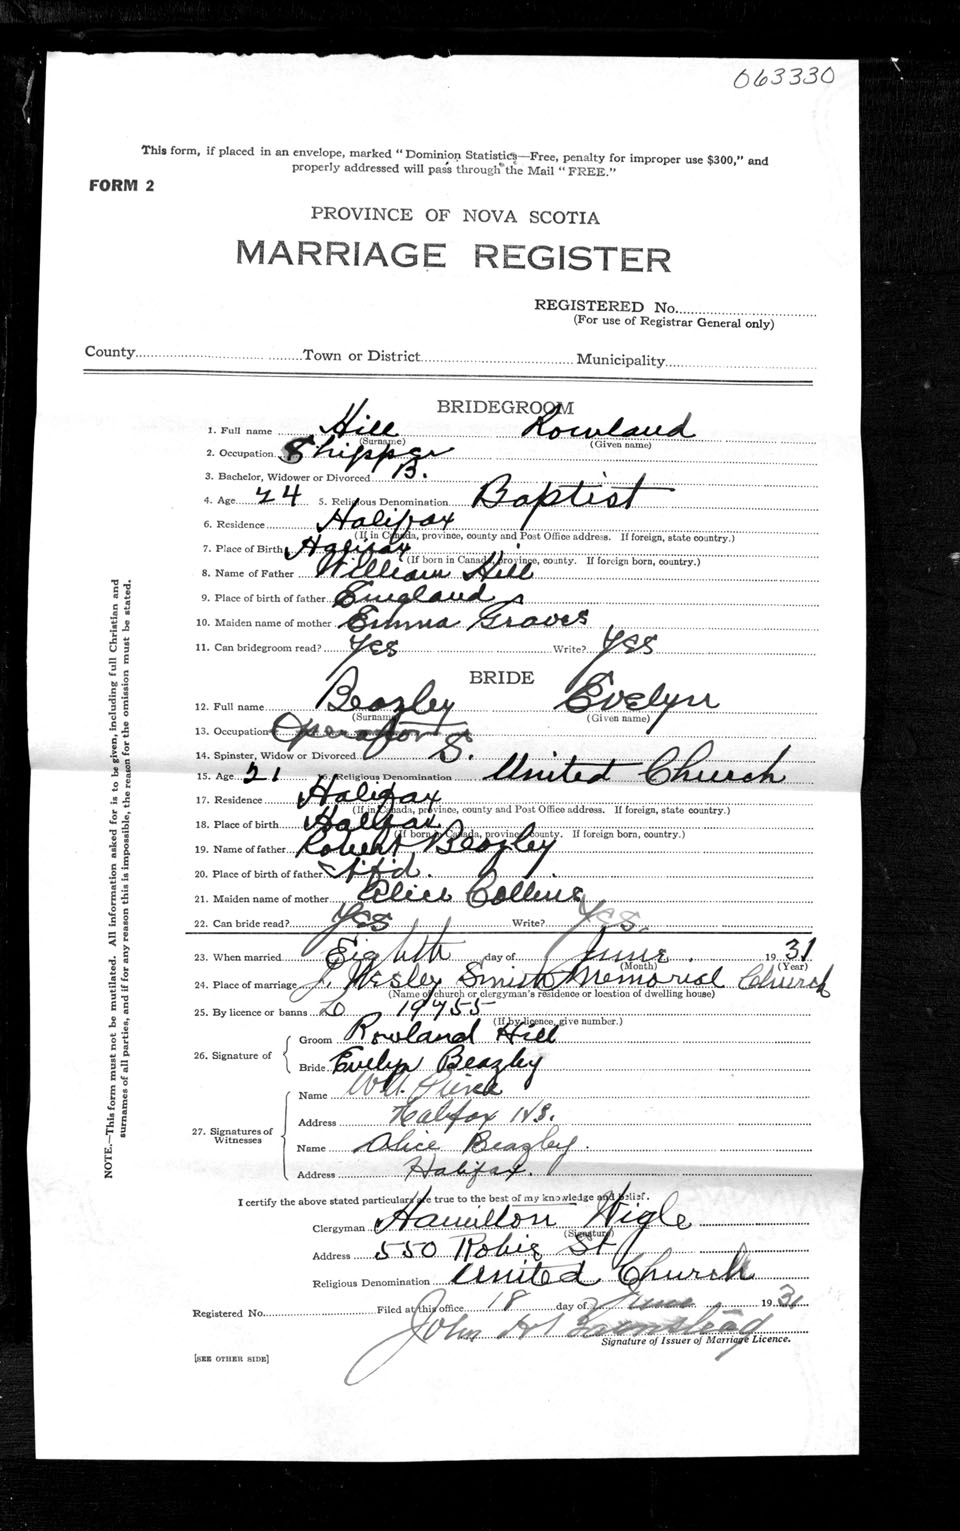 063330
This form, if placed in an envelope, marked "Dominion Statistics—Free, penalty for improper use $300," and
properly addressed will pass through the Mail "FREE."
FORM 2
PROVINCE OF NOVA SCOTIA
MARRIAGE REGISTER
REGISTERED No.
(For use of Registrar General only)
County Town or District Municipality
BRIDEGROOM
1. Full name Hill Rowland
(Surname) (Given name)
2. Occupation Shipper
3. Bachelor, Widower or Divorced B.
4. Age 24 5. Religious Denomination Baptist
6. Residence Halifax
(If in Canada, province, county and Post Office address. If foreign, state country.)
7. Place of Birth Halifax
(If born in Canada, province, county. If foreign born, country.)
8. Name of Father William Hill
9. Place of birth of father England
10. Maiden name of mother Emma Graves
11. Can bridegroom read? Yes Write? Yes
BRIDE
12. Full name Beazley Evelyn
(Surname) (Given name)
13. Occupation Operator
14. Spinster, Widow or Divorced S.
15. Age 21 16. Religious Denomination United Church
17. Residence Halifax
(If in Canada, province, county and Post Office address. If foreign, state country.)
18. Place of birth Halifax
(If born in Canada, province, county. If foreign born, country.)
19. Name of father Robert Beazley
20. Place of birth of father Nfd.
21. Maiden name of mother Alice Collins
22. Can bride read? Yes Write? Yes.
23. When married Eighth day of June. 1931
(Month) (Year)
24. Place of marriage J. Wesley Smith Memorial Church
(Name of church or clergyman's residence or location of dwelling house)
25. By licence or banns L 19755
(If by licence, give number.)
26. Signature of
Groom Rowland Hill
Bride Evelyn Beazley
27. Signatures of
Witnesses
Name Wm.
Address Halifax N.S.
Name Alice Beazley.
Address Halifax.
I certify the above stated particulars are true to the best of my knowledge and belief.
Clergyman Hamilton Wigle
(Signature)
Address 550 Robie St
Religious Denomination United Church
Registered No. Filed at this office 18 day of June 1931
John H
Signature of Issuer of Marriage Licence.
[SEE OTHER SIDE]
NOTE.—This form must not be mutilated. All information asked for is to be given, including full Christian and
surnames of all parties, and if for any reason this is impossible, the reason for the omission must be stated.